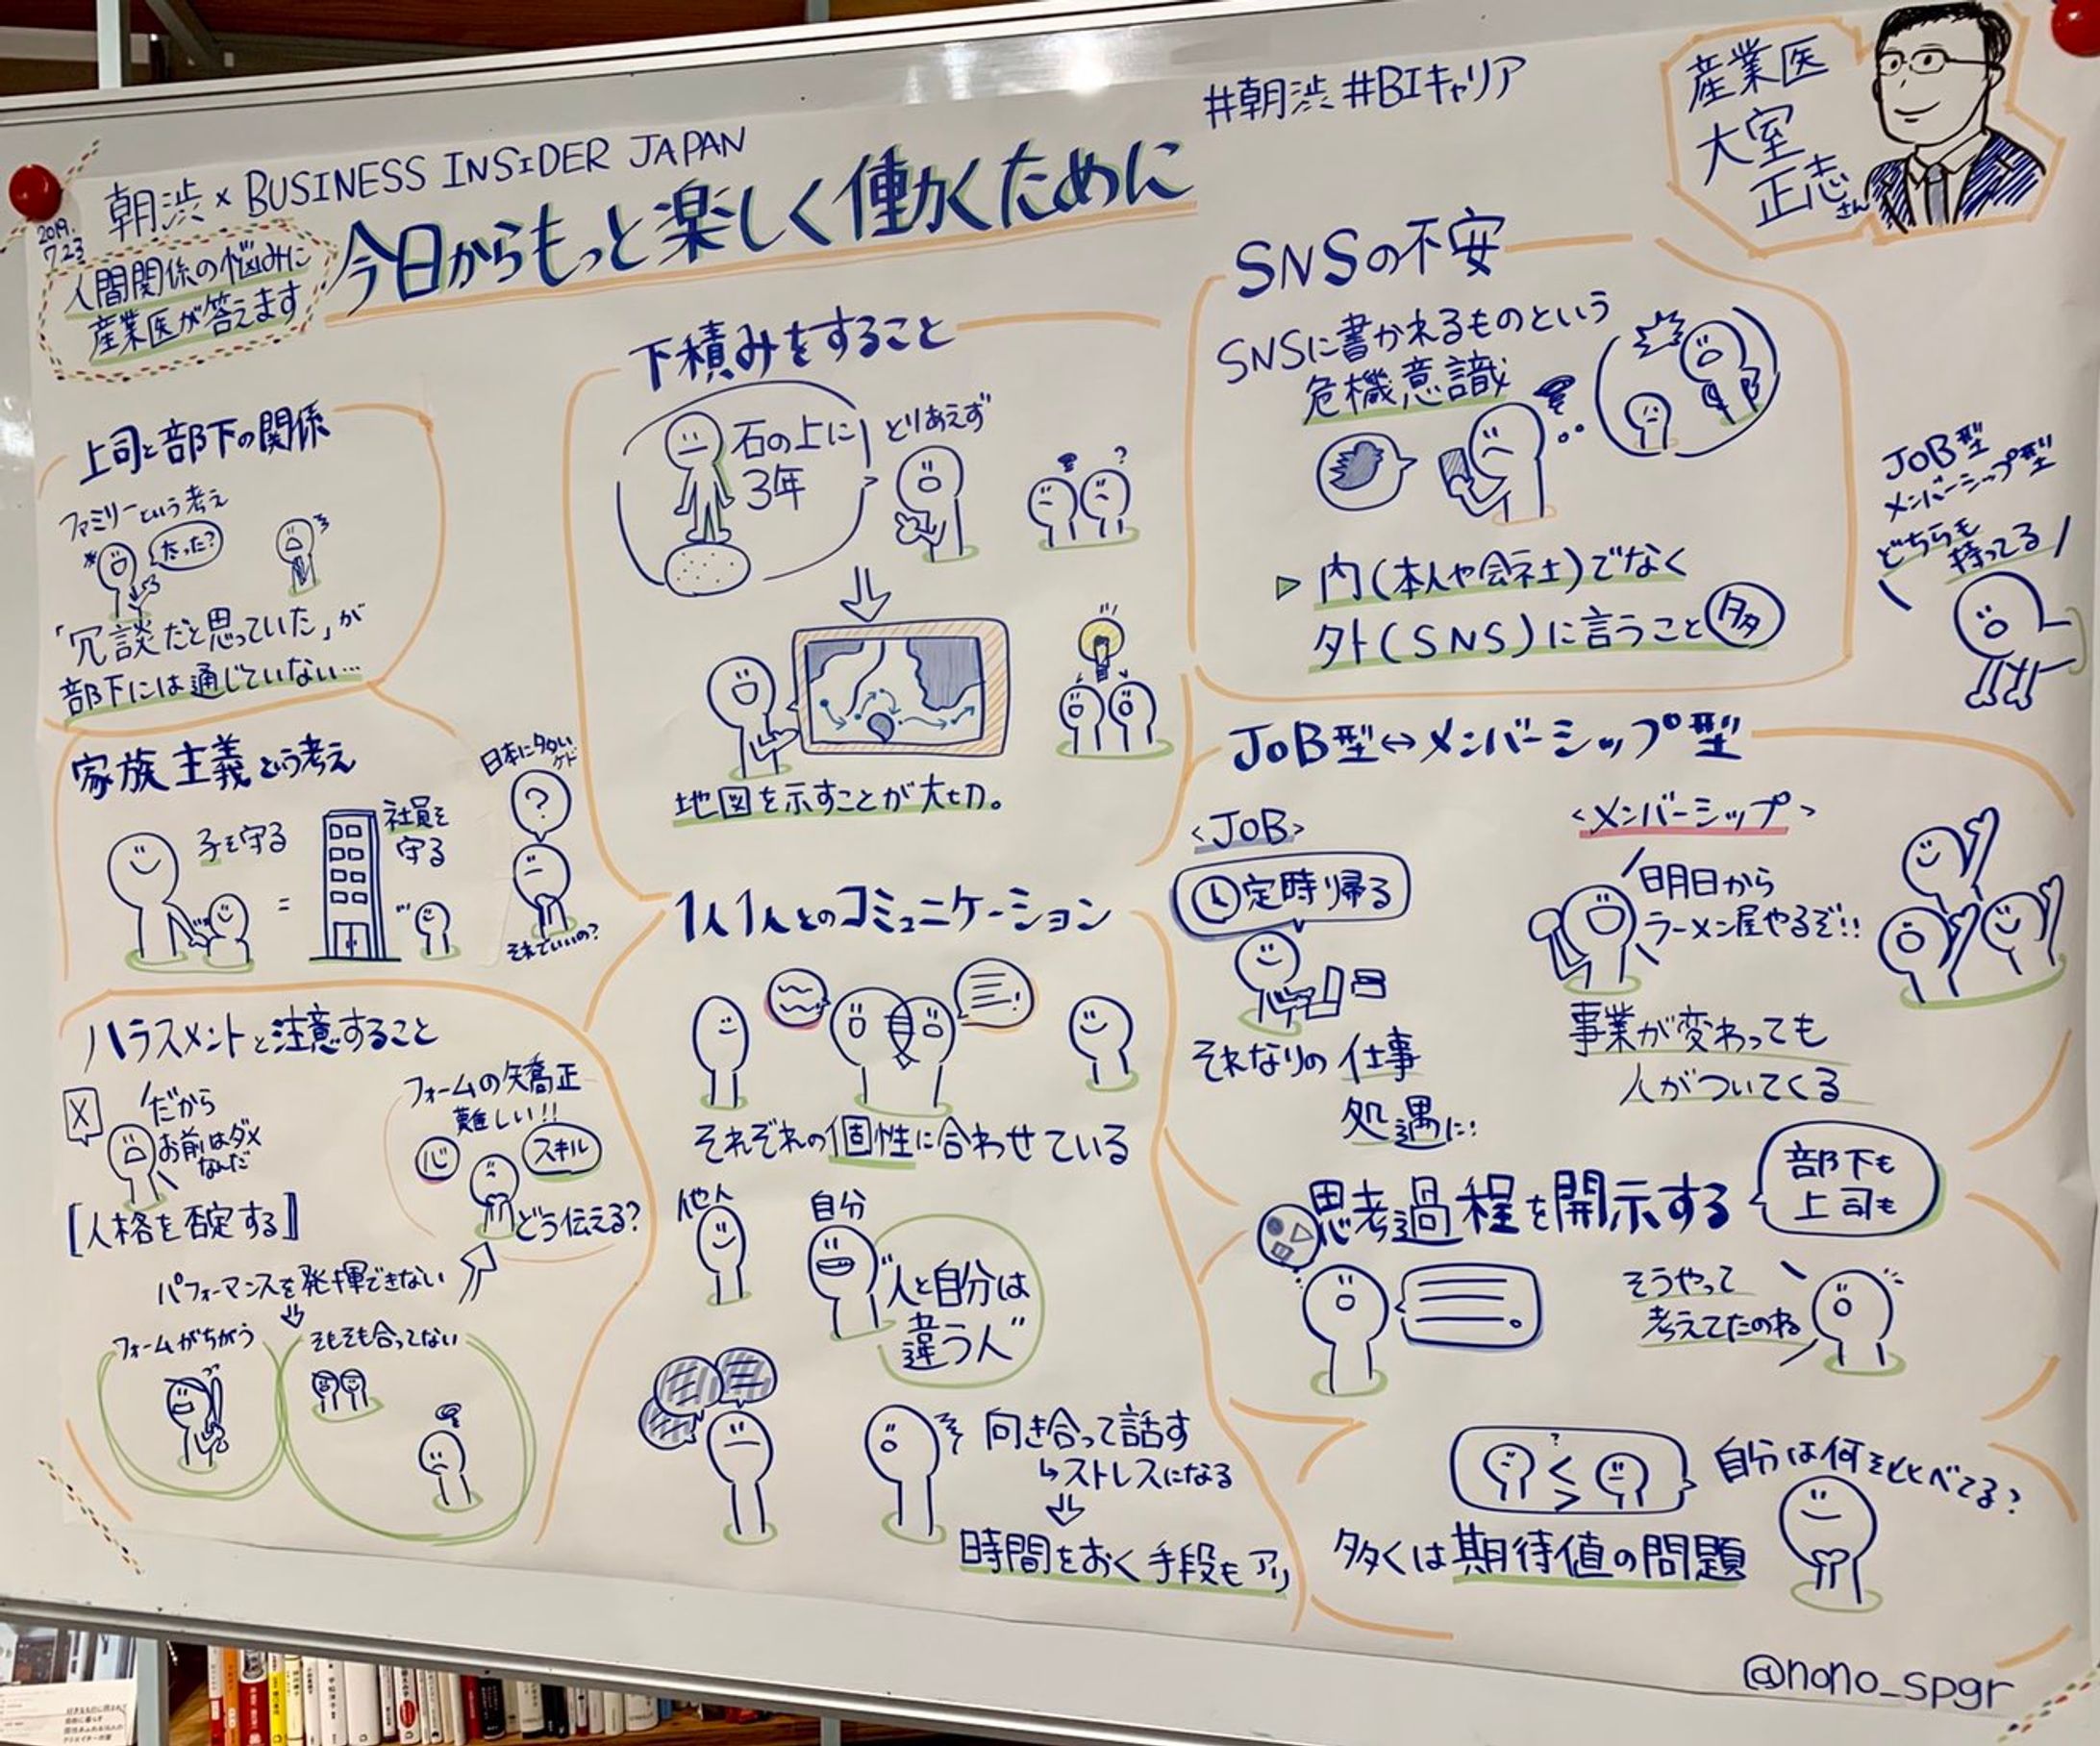 #朝渋 #BIキャリア
産業医
大室
正志さん
朝渋×BUSINESS INSiDER JAPAN
2019.
7.23
今日からもっと楽しく働くために
人間関係の悩みに
産業医が答えます
上司と部下の関係
ファミリーという考え
だった?
「冗談だと思っていた」が
部下には通じていない…
家族主義という考え
子を守る
=
社員を
守る
日本に多い
ケド
?
それでいいの?
ハラスメントと注意すること
X
だから
お前はダメ
なんだ
[人格を否定する]
フォームの矯正
難しい!!
心
スキル
どう伝える?
パフォーマンスを発揮できない
フォームがちがう
そもそも合ってない
下積みをすること
石の上に
3年
とりあえず
?
地図を示すことが大切。
1人1人とのコミュニケーション
それぞれの個性に合わせている
他人
自分
"人と自分は
違う人"
向き合って話す
↳ストレスになる
時間をおく手段もアリ
SNSの不安
SNSに書かれるものという
危機意識
▷内(本人や会社)でなく
外(SNS)に言うこと多
JOB型
メンバーシップ型
どちらも
持ってる
JOB型↔メンバーシップ型
<JOB>
定時り帰る
それなりの仕事
処遇に!
<メンバーシップ>
明日から
ラーメン屋やるぞ!!
事業が変わっても
人がついてくる
思考過程を開示する
部下も
上司も
そうやって
考えてたのね
?
自分は何をととべてる?
多くは期待値の問題
@nono_spgr